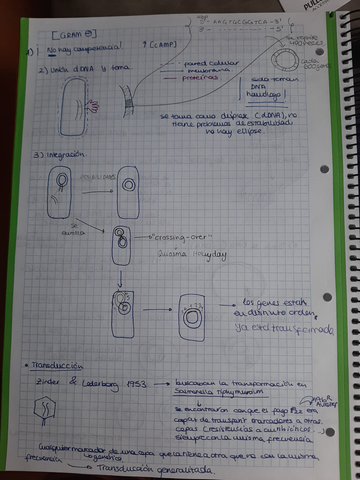 [GRAM ⊖]
5' - AAGTGCGGTCA - 3'
3' - - 5'
1) No hay competencia! ? [cAMP]
se repite
cada
2) Unión dDNA y toma
pared celular
membrana
proteínas
solo toman
DNA
homólogo!
se toma como dúplex (dDNA), no
tiene problemas de estabilidad
no hay eclipse.
3) Integración
se
"crossing-over"
Quiasma Holliday
los genes están
en distinto orden,
ya está transformada
• Transducción
Zinder & Lederberg 1953 → buscaban la transformación en
Salmonella typhymurium
Se encontraron con que el fago P22 era
capaz de transport marcadores a otras
cepas (resistencias a antibióticos)
siempre con la misma frecuencia
Cualquier marcador de una cepa que la tiene a otra que no con la misma
genético
frecuencia → Transducción generalizada.